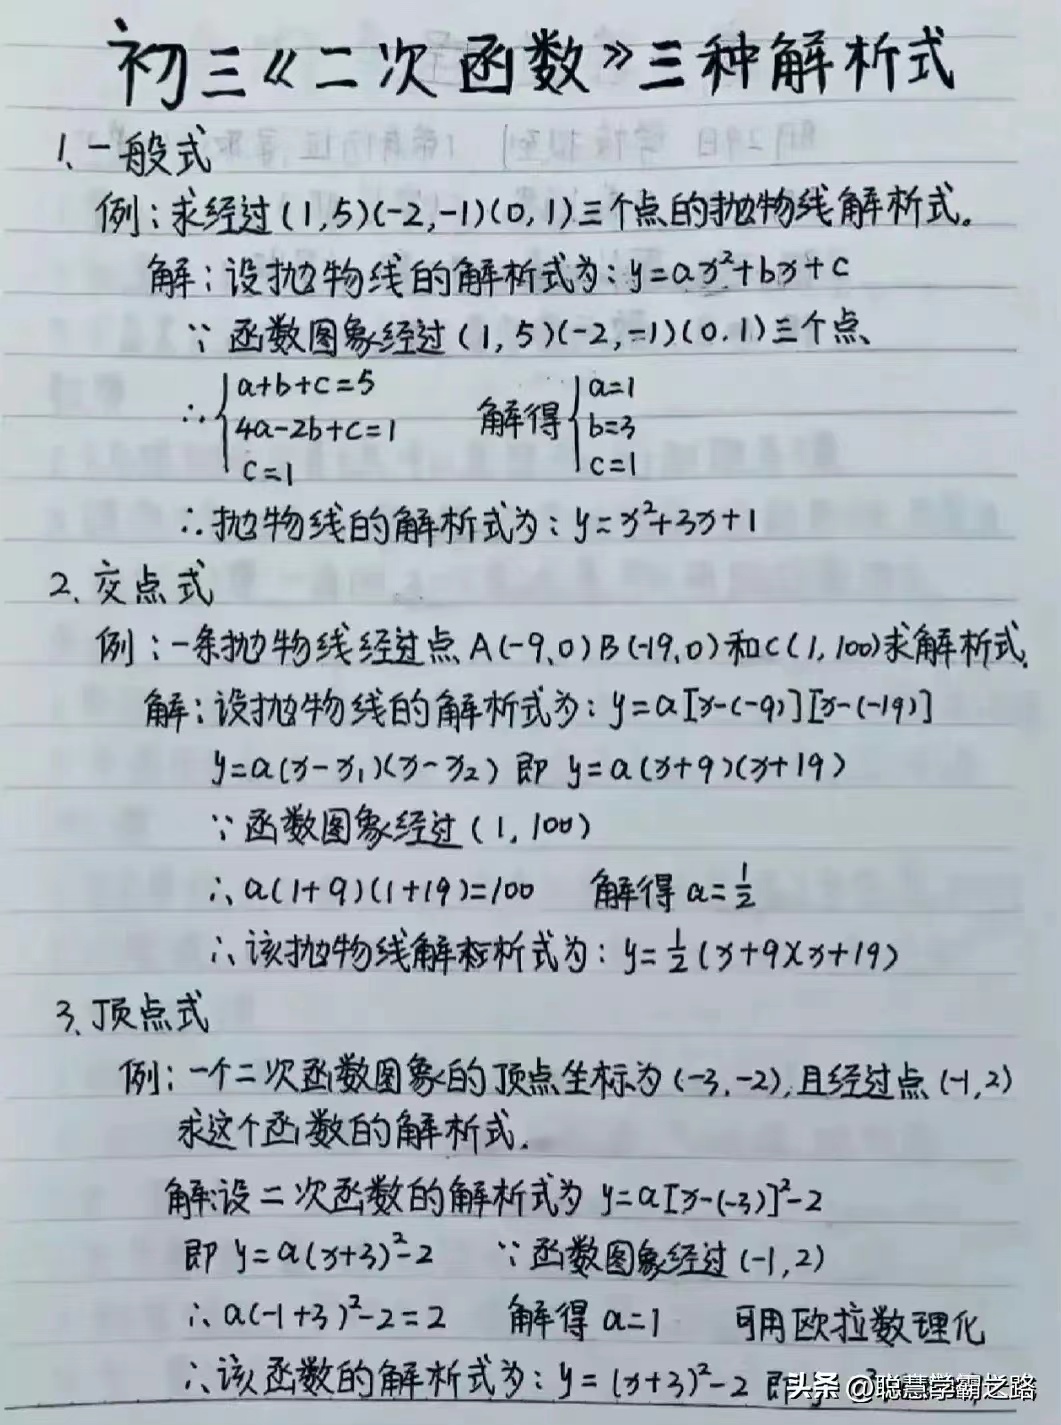 初三《二次函数》三种解析式
1、一般式
例：求经过(1,5)(-2,-1)(0,1)三个点的抛物线解析式。
解：设抛物线的解析式为：y=ax²+bx+c
∵函数图象经过(1,5)(-2,-1)(0.1)三个点、
∴{a+b+c=5 解得{a=1
4a-2b+c=1 b=3
c=1 c=1
∴抛物线的解析式为：y=x²+3x+1
2、交点式
例：一条抛物线经过点A(-9,0)B(-19,0)和C(1,100)求解析式.
解：设抛物线的解析式为：y=a[x-(-9)][x-(-19)]
y=a(x-x₁)(x-x₂) 即 y=a(x+9)(x+19)
∵函数图象经过(1,100)
∴a(1+9)(1+19)=100 解得a=1/2
∴该抛物线解析式为：y=1/2(x+9)(x+19)
3、顶点式
例：一个二次函数图象的顶点坐标为(-3,-2),且经过点(-1,2)
求这个函数的解析式.
解:设二次函数的解析式为 y=a[x-(-3)]²-2
即 y=a(x+3)²-2 ∵函数图象经过(-1,2)
∴a(-1+3)²-2=2 解得 a=1 可用欧拉数理化
∴该函数的解析式为：y=(x+3)²-2 即
头条 @聪慧学霸之路